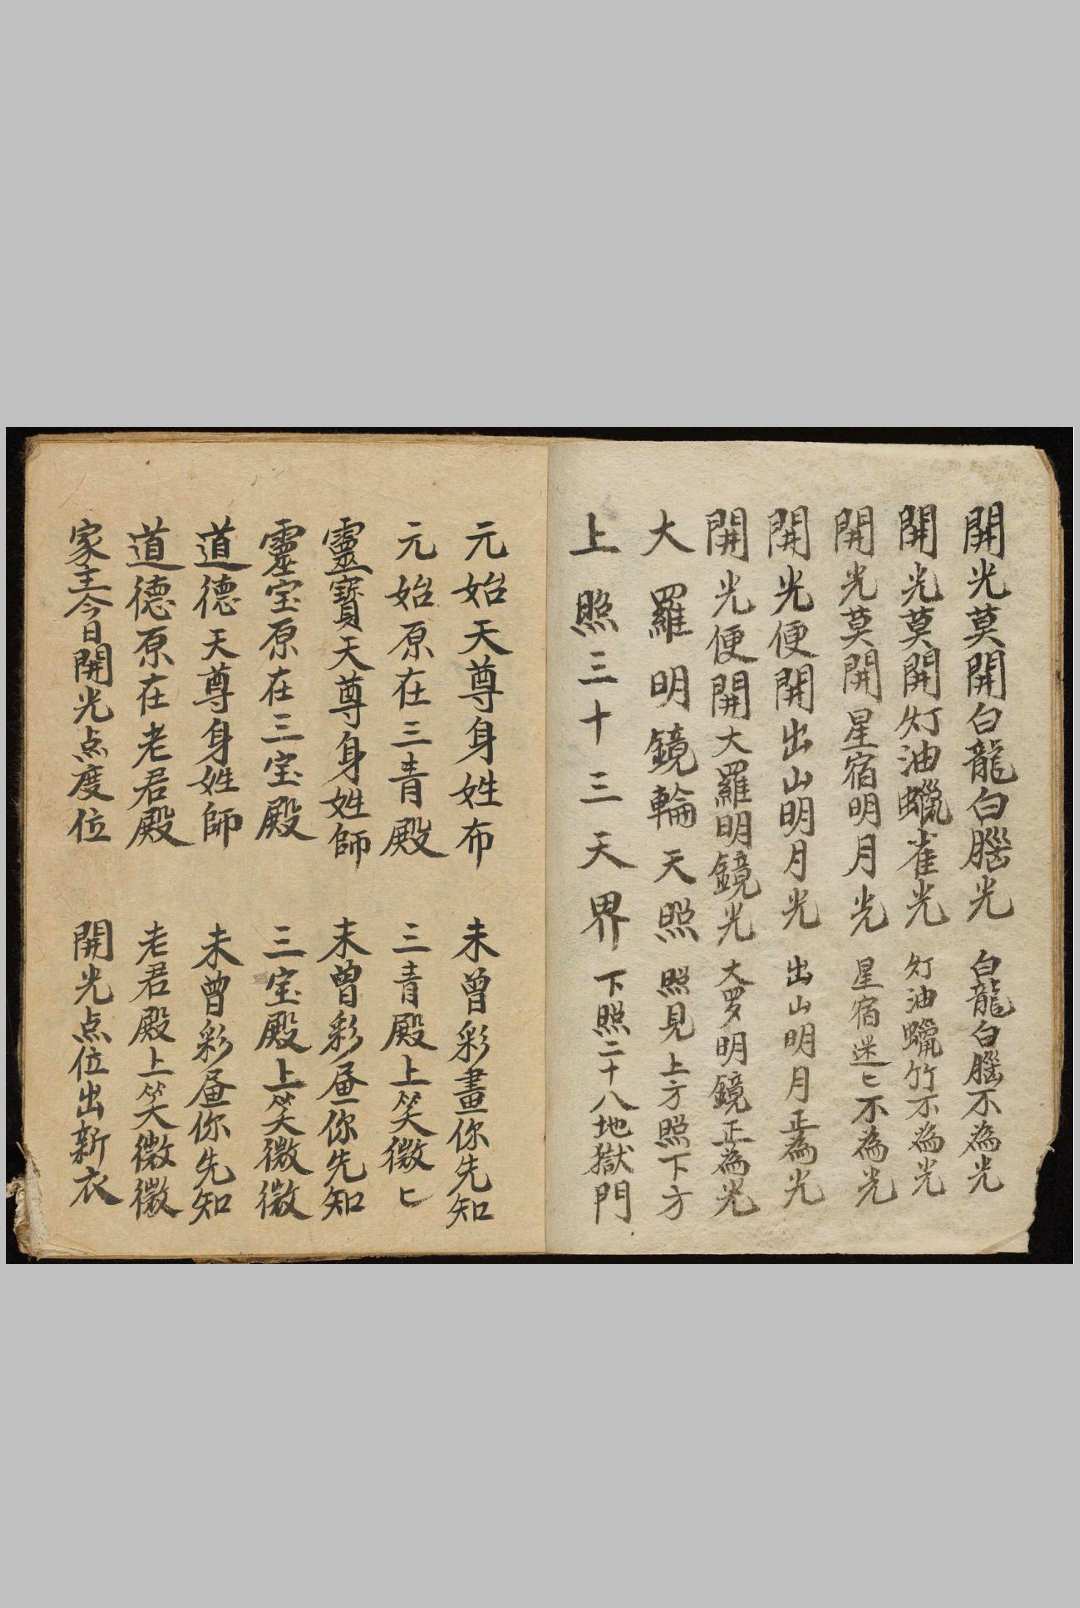 開光莫開白龍白腦光 白龍白腦不為光
開光莫開灯油蠟雀光 灯油蠟竹不為光
開光莫開星宿明月光 星宿迷〻不為光
開光便開出山明月光 出山明月正為光
開光便開大羅明鏡光 大罗明鏡正為光
大羅明鏡輪天照 照見上方照下方
上照三十三天界 下照二十八地獄門
元始天尊身姓布 未曾彩畫你先知
元始原在三青殿 三青殿上笑微〻
靈寶天尊身姓師 未曾彩昼你先知
靈宝原在三宝殿 三宝殿上笑微微
道德天尊身姓師 未曾彩昼你先知
道德原在老君殿 老君殿上笑微微
家主今日開光点度位 開光点位出新衣